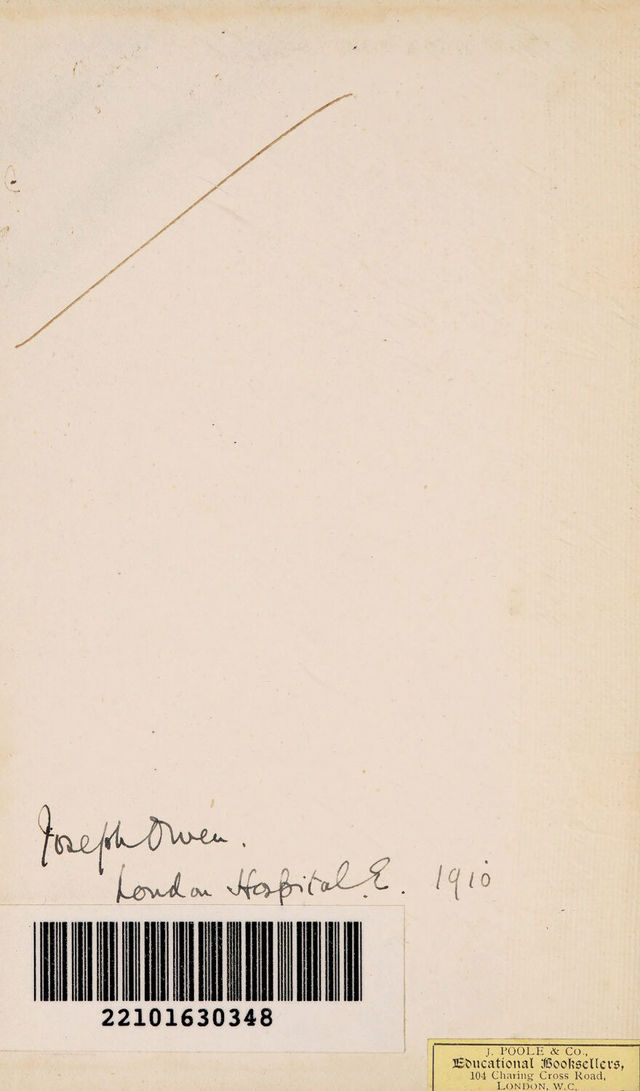 Joseph Owen.
London Hospital. E. 1910
22101630348
J. POOLE & CO.,
Educational Booksellers,
104 Charing Cross Road,
LONDON, W.C.